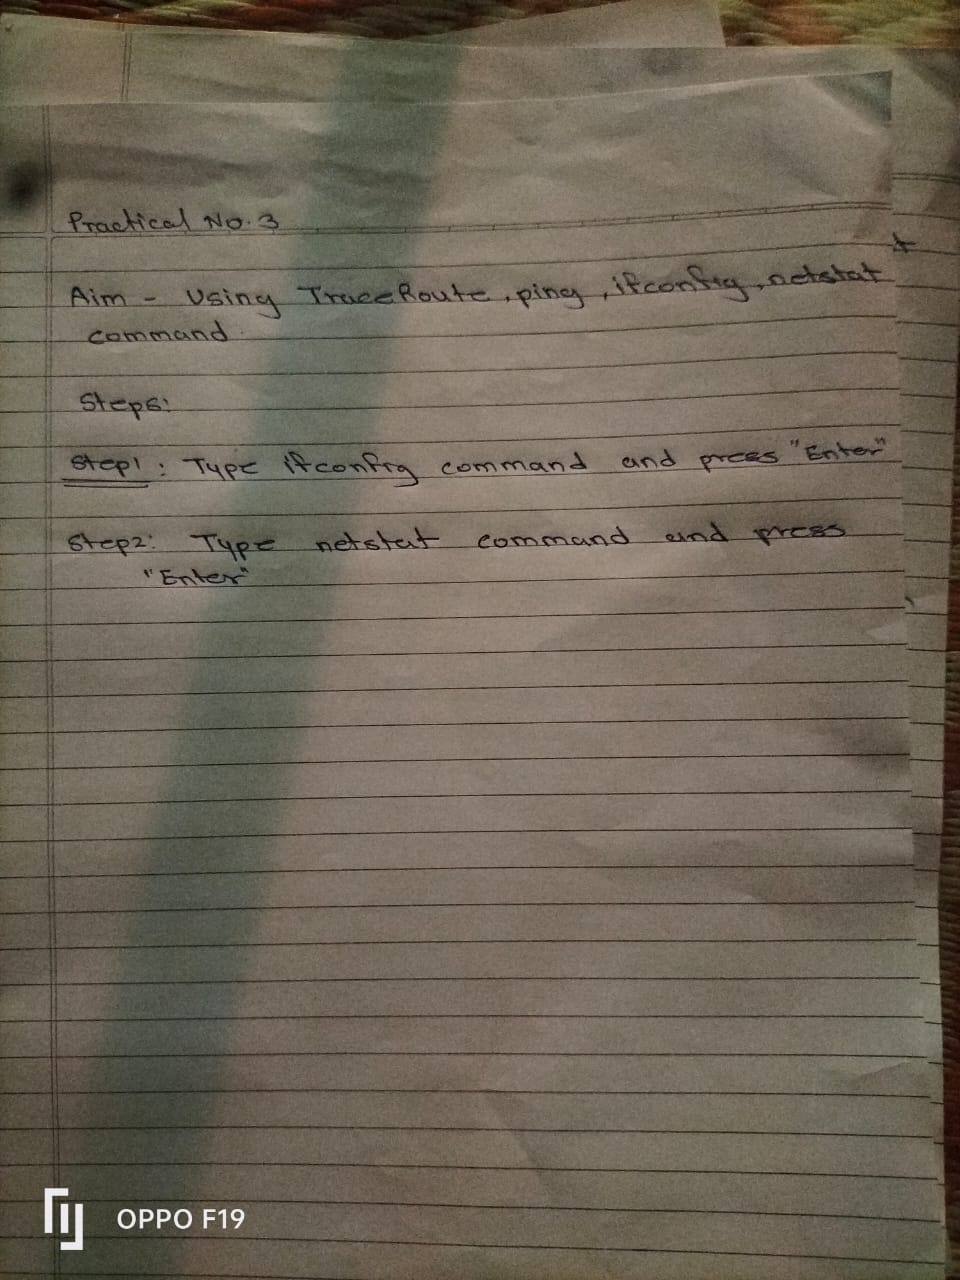 Practical No. 3
Aim - Using TraceRoute, ping, ifconfig, netstat
command.
Steps:
Step1: Type ifconfig command and press "Enter"
Step2: Type netstat command and press
"Enter"
OPPO F19